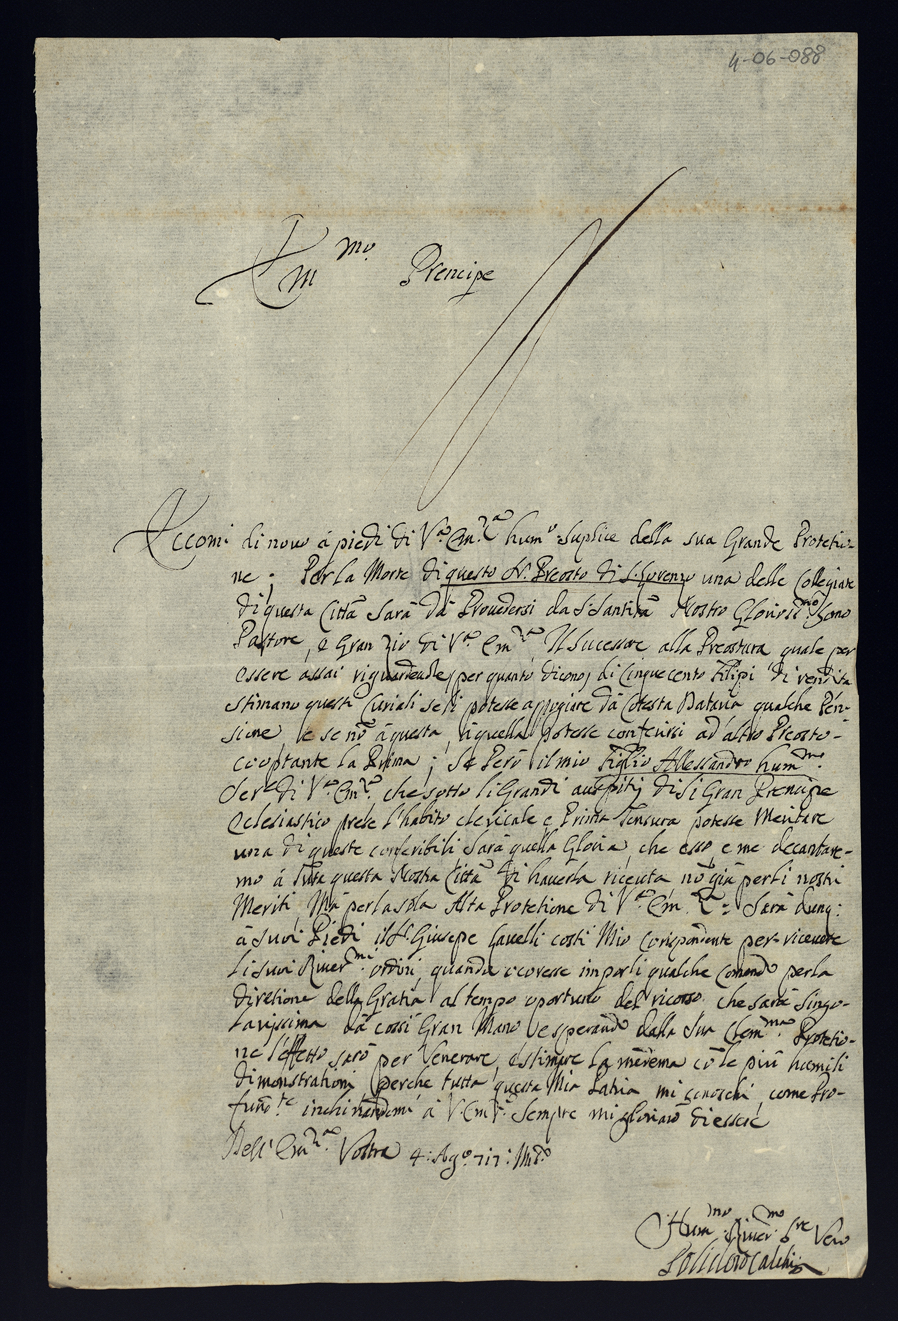 4-06-088
Em.mo Prencipe
Eccomi di novo á piedi di V.a Em.za hum.o suplice della sua Grande Protetio-
ne; Per la Morte di questo S.r Preosto di S. Lorenzo una delle Collegiate
di questa Città Sarà dà Provedersi da S Santità Nostro Glorios.mo Sono
Pastore, e Gran Zio di V.a Em.za Il Sucessore alla Preostura quale per
essere assai riguardevole, per quanto dicono, di Cinquecento Filipi di rendita
stimano questi Curiali se li potesse appogiare dà Cotesta Dataria qualche Pen-
sione, e se nò á questa, á quella potesse conferirsi ad' altro Preosto
cooptante la Prima; Se Però il mio Figlio Allessandro hum.mo
Ser.e di V.a Em.za che sotto li Grandi auspitij di sì Gran Prencipe
Eclesiastico prese l'habito clericale e Prima Tonsura potesse Meritare
una di queste conferibili Sarà quella Gloria, che esso, e me decantare-
mo á Tutta questa Nostra Città di haverla riceuta nò già per li nostri
Meriti, Mà per la sola Alta Protetione di V.a Em.za: Sarà dunq:
á suoi Piedi il S.r Giusepe Cavelli costì Mio Corispondente per ricevere
li suoi River.mi ordini, quando ocoresse imporli qualche Comando per la
diretione della Gratia al tempo oportuno del ricorso che sarà Singo-
larissima dà cossì Gran Mano, e sperando dalla Sua Clem.ma Protetio-
ne l'effetto sarò per Venerare, e stimare la medema cò le più humili
dimonstrationi, perche tutta questa Mia Patria mi conoschi, come Pro-
fun.te inchinandomi á V. Em.za Sempre mi gloriarò di essere
Dell' Em.za Vostra 4: Ago. 717: Mil.o
Hum.mo River.mo S.re Vero
Calchi